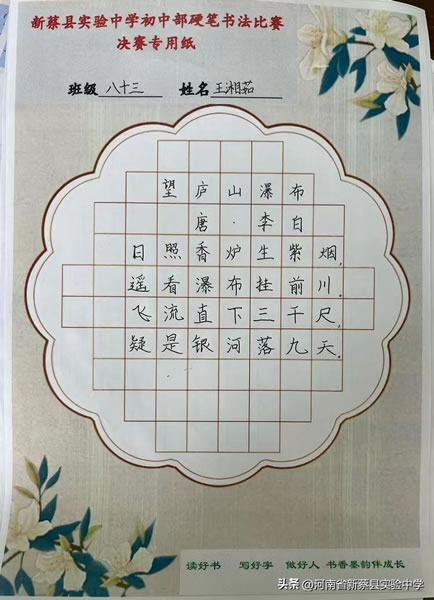 新蔡县实验中学初中部硬笔书法比赛
决赛专用纸
班级 八十三 姓名 王湘茹
望庐山瀑布
唐·李白
日照香炉生紫烟,
遥看瀑布挂前川。
飞流直下三千尺,
疑是银河落九天。
读好书 写好字 做好人 书香墨韵伴成长
头条 @河南省新蔡县实验中学